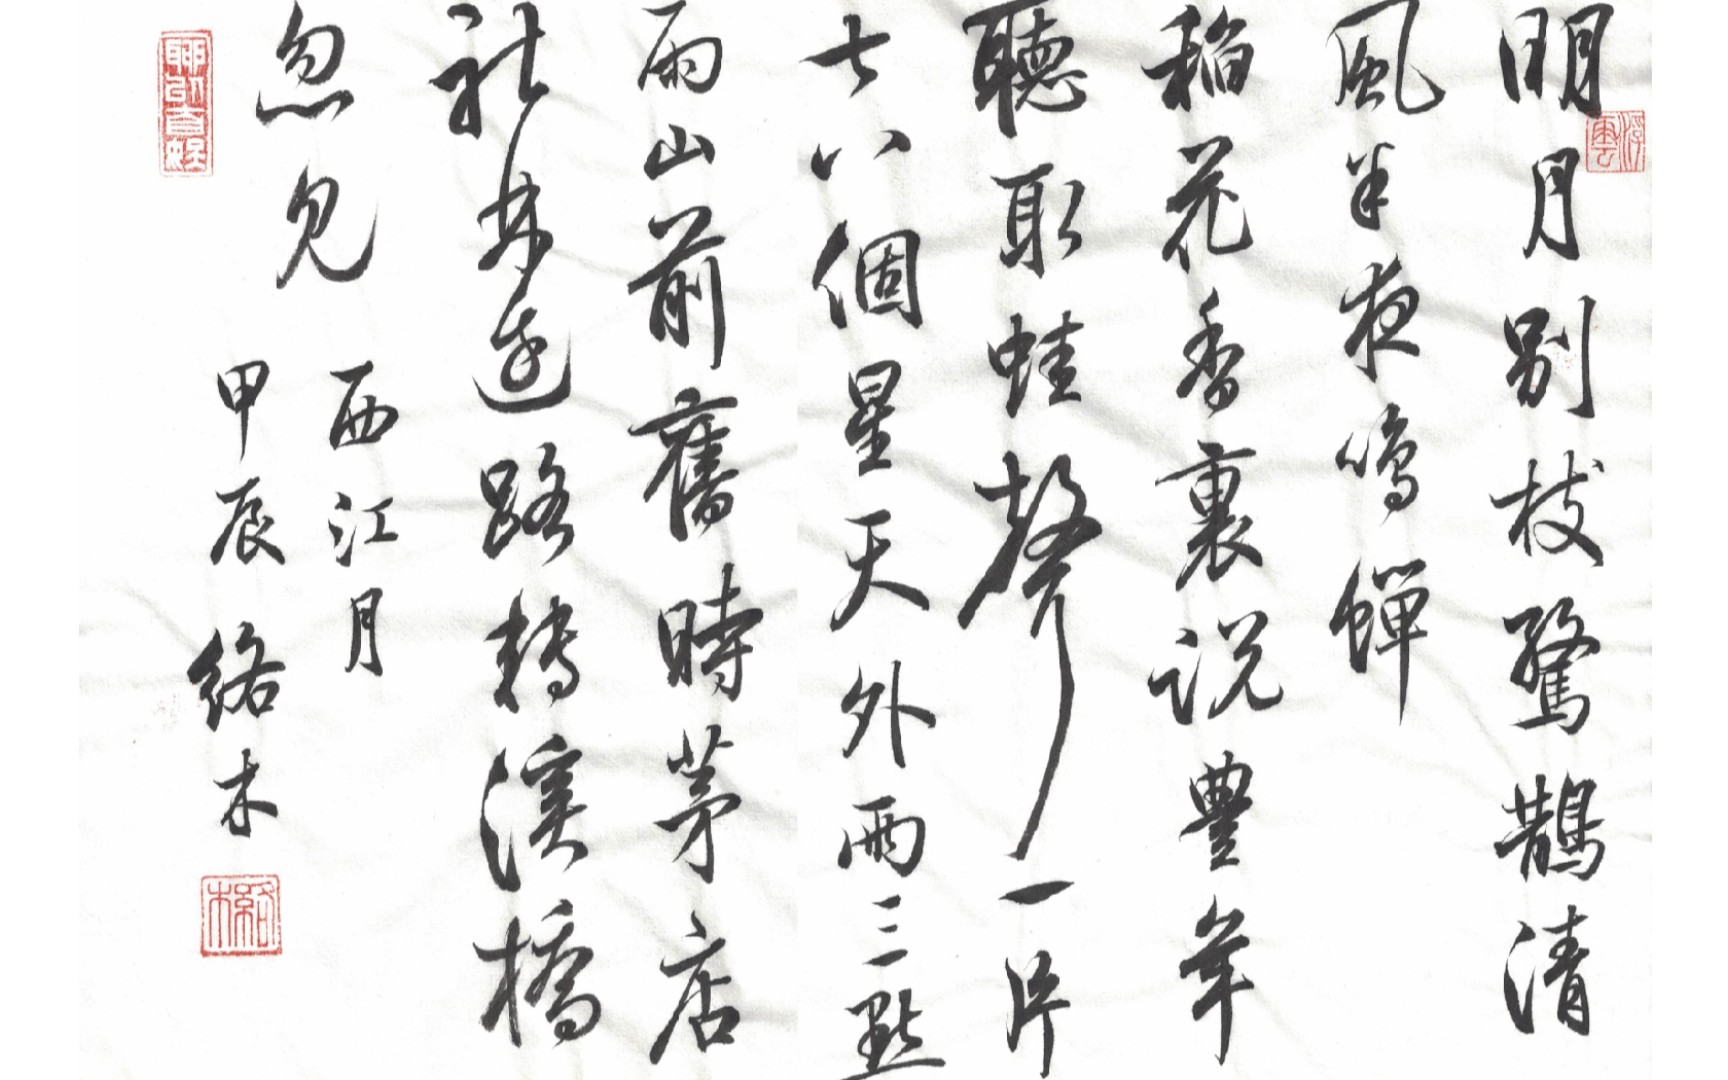 明月别枝驚鵲清
風半夜鳴蟬
稻花香裏说豐年
聽取蛙聲一片
七八個星天外兩三點
雨山前舊時茅店
社林边路轉溪橋
忽見
西江月
甲辰 络木
浮雲
络木